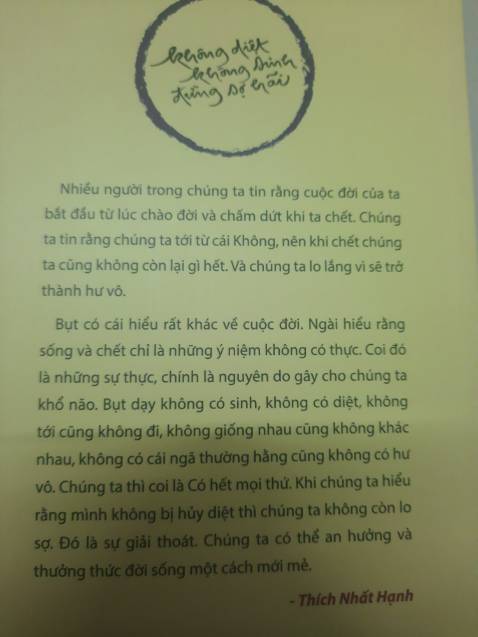 không diệt
không sinh
đừng sợ hãi
Nhiều người trong chúng ta tin rằng cuộc đời của ta
bắt đầu từ lúc chào đời và chấm dứt khi ta chết. Chúng
ta tin rằng chúng ta tới từ cái Không, nên khi chết chúng
ta cũng không còn lại gì hết. Và chúng ta lo lắng vì sẽ trở
thành hư vô.
Bụt có cái hiểu rất khác về cuộc đời. Ngài hiểu rằng
sống và chết chỉ là những ý niệm không có thực. Coi đó
là những sự thực, chính là nguyên do gây cho chúng ta
khổ não. Bụt dạy không có sinh, không có diệt, không
tới cũng không đi, không giống nhau cũng không khác
nhau, không có cái ngã thường hằng cũng không có hư
vô. Chúng ta thì coi là Có hết mọi thứ. Khi chúng ta hiểu
rằng mình không bị hủy diệt thì chúng ta không còn lo
sợ. Đó là sự giải thoát. Chúng ta có thể an hưởng và
thưởng thức đời sống một cách mới mẻ.
- Thích Nhất Hạnh